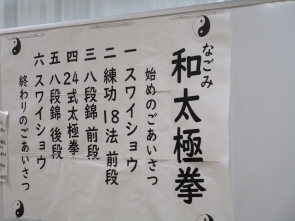 なごみ
和太極拳
始めのごあいさつ
一 スワイショウ
二 練功18法 前段
三 八段錦 前段
四 24式太極拳
五 八段錦 後段
六 スワイショウ
終わりのごあいさつ